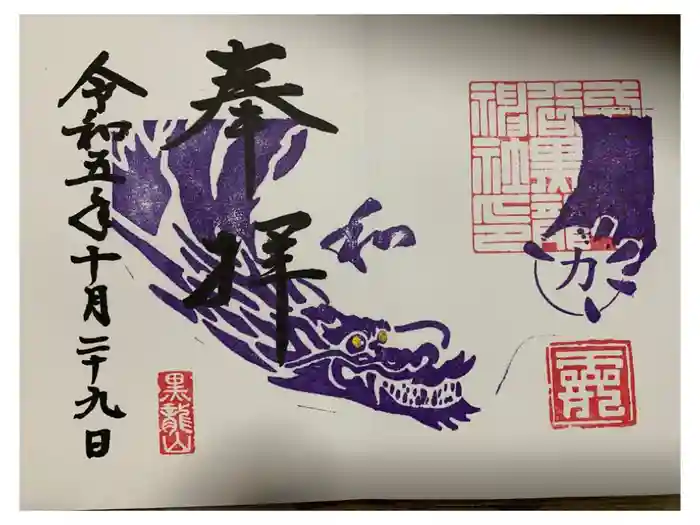 奉拝
和
力
令和五年十月二十九日
黒龍山
龗